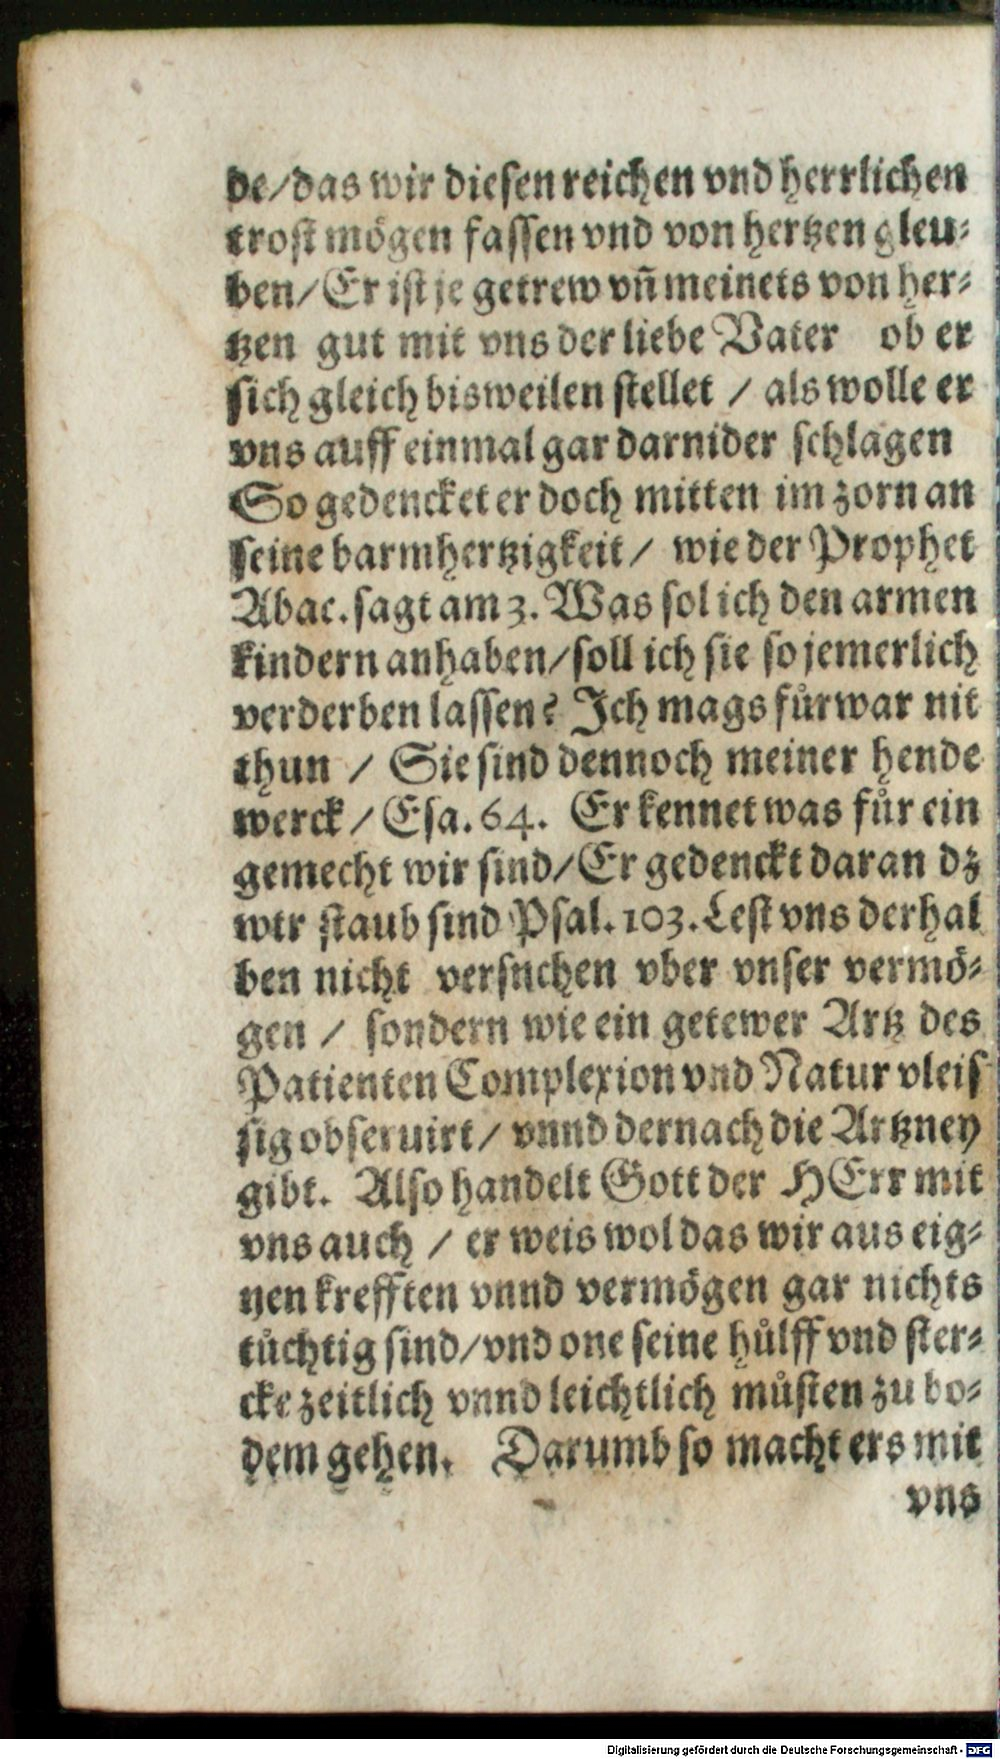 de/das wir diesen reichen vnd herrlichen
trost mögen fassen vnd von hertzen gleu⸗
ben/Er ist je getrew vñ meinets von her⸗
tzen gut mit vns der liebe Vater ob er
sich gleich bisweilen stellet / als wolle er
vns auff einmal gar darnider schlagen
So gedencket er doch mitten im zorn an
seine barmhertzigkeit / wie der Prophet
Abac. sagt am 3. Was sol ich den armen
kindern anhaben/soll ich sie so jemerlich
verderben lassen? Ich mags fůrwar nit
thun / Sie sind dennoch meiner hende
werck / Esa. 64. Er kennet was fůr ein
gemecht wir sind/Er gedenckt daran dz
wir staub sind Psal. 103. Lest vns derhal
ben nicht versuchen vber vnser vermö⸗
gen / sondern wie ein getewer Artz des
Patienten Complexion vnd Natur vleis
sig obseruirt / vnnd dernach die Artzney
gibt. Also handelt Gott der HErr mit
vns auch / er weis wol das wir aus eig⸗
nen krefften vnnd vermögen gar nichts
tůchtig sind/vnd one seine hůlff vnd ster⸗
cke zeitlich vnnd leichtlich můsten zu bo⸗
dem gehen. Darumb so macht ers mit
vns
Digitalisierung gefördert durch die Deutsche Forschungsgemeinschaft - DFG